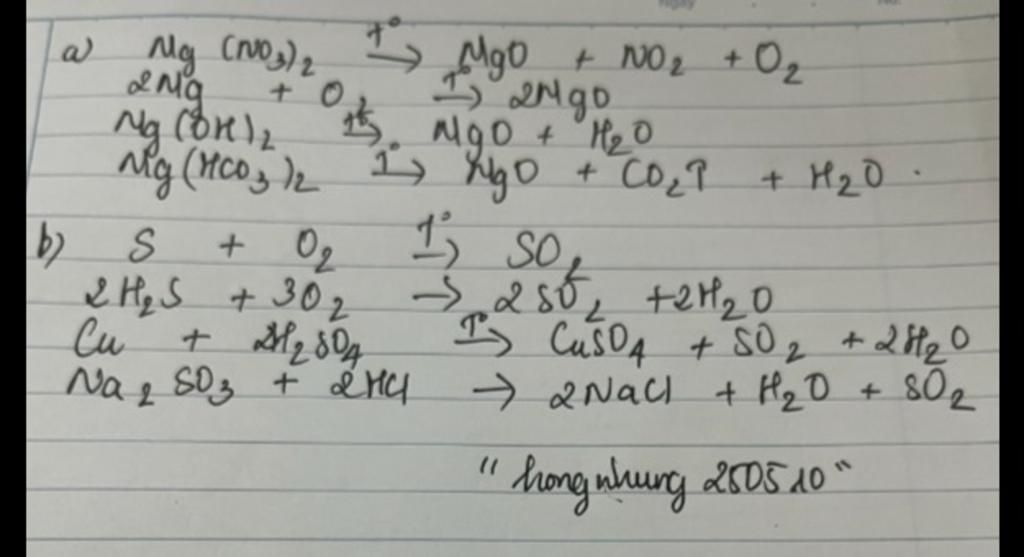 a) Mg (NO₃)₂ t° → MgO + NO₂ + O₂
2Mg + O₂ t° → 2MgO
Mg(OH)₂ t° → MgO + H₂O
Mg(HCO₃)₂ t° → MgO + CO₂↑ + H₂O.
b) S + O₂ t° → SO₂
2H₂S + 3O₂ → 2SO₂ + 2H₂O
Cu + 2H₂SO₄ t° → CuSO₄ + SO₂ + 2H₂O
Na₂SO₃ + 2HCl → 2NaCl + H₂O + SO₂
"hongnhung 250510"